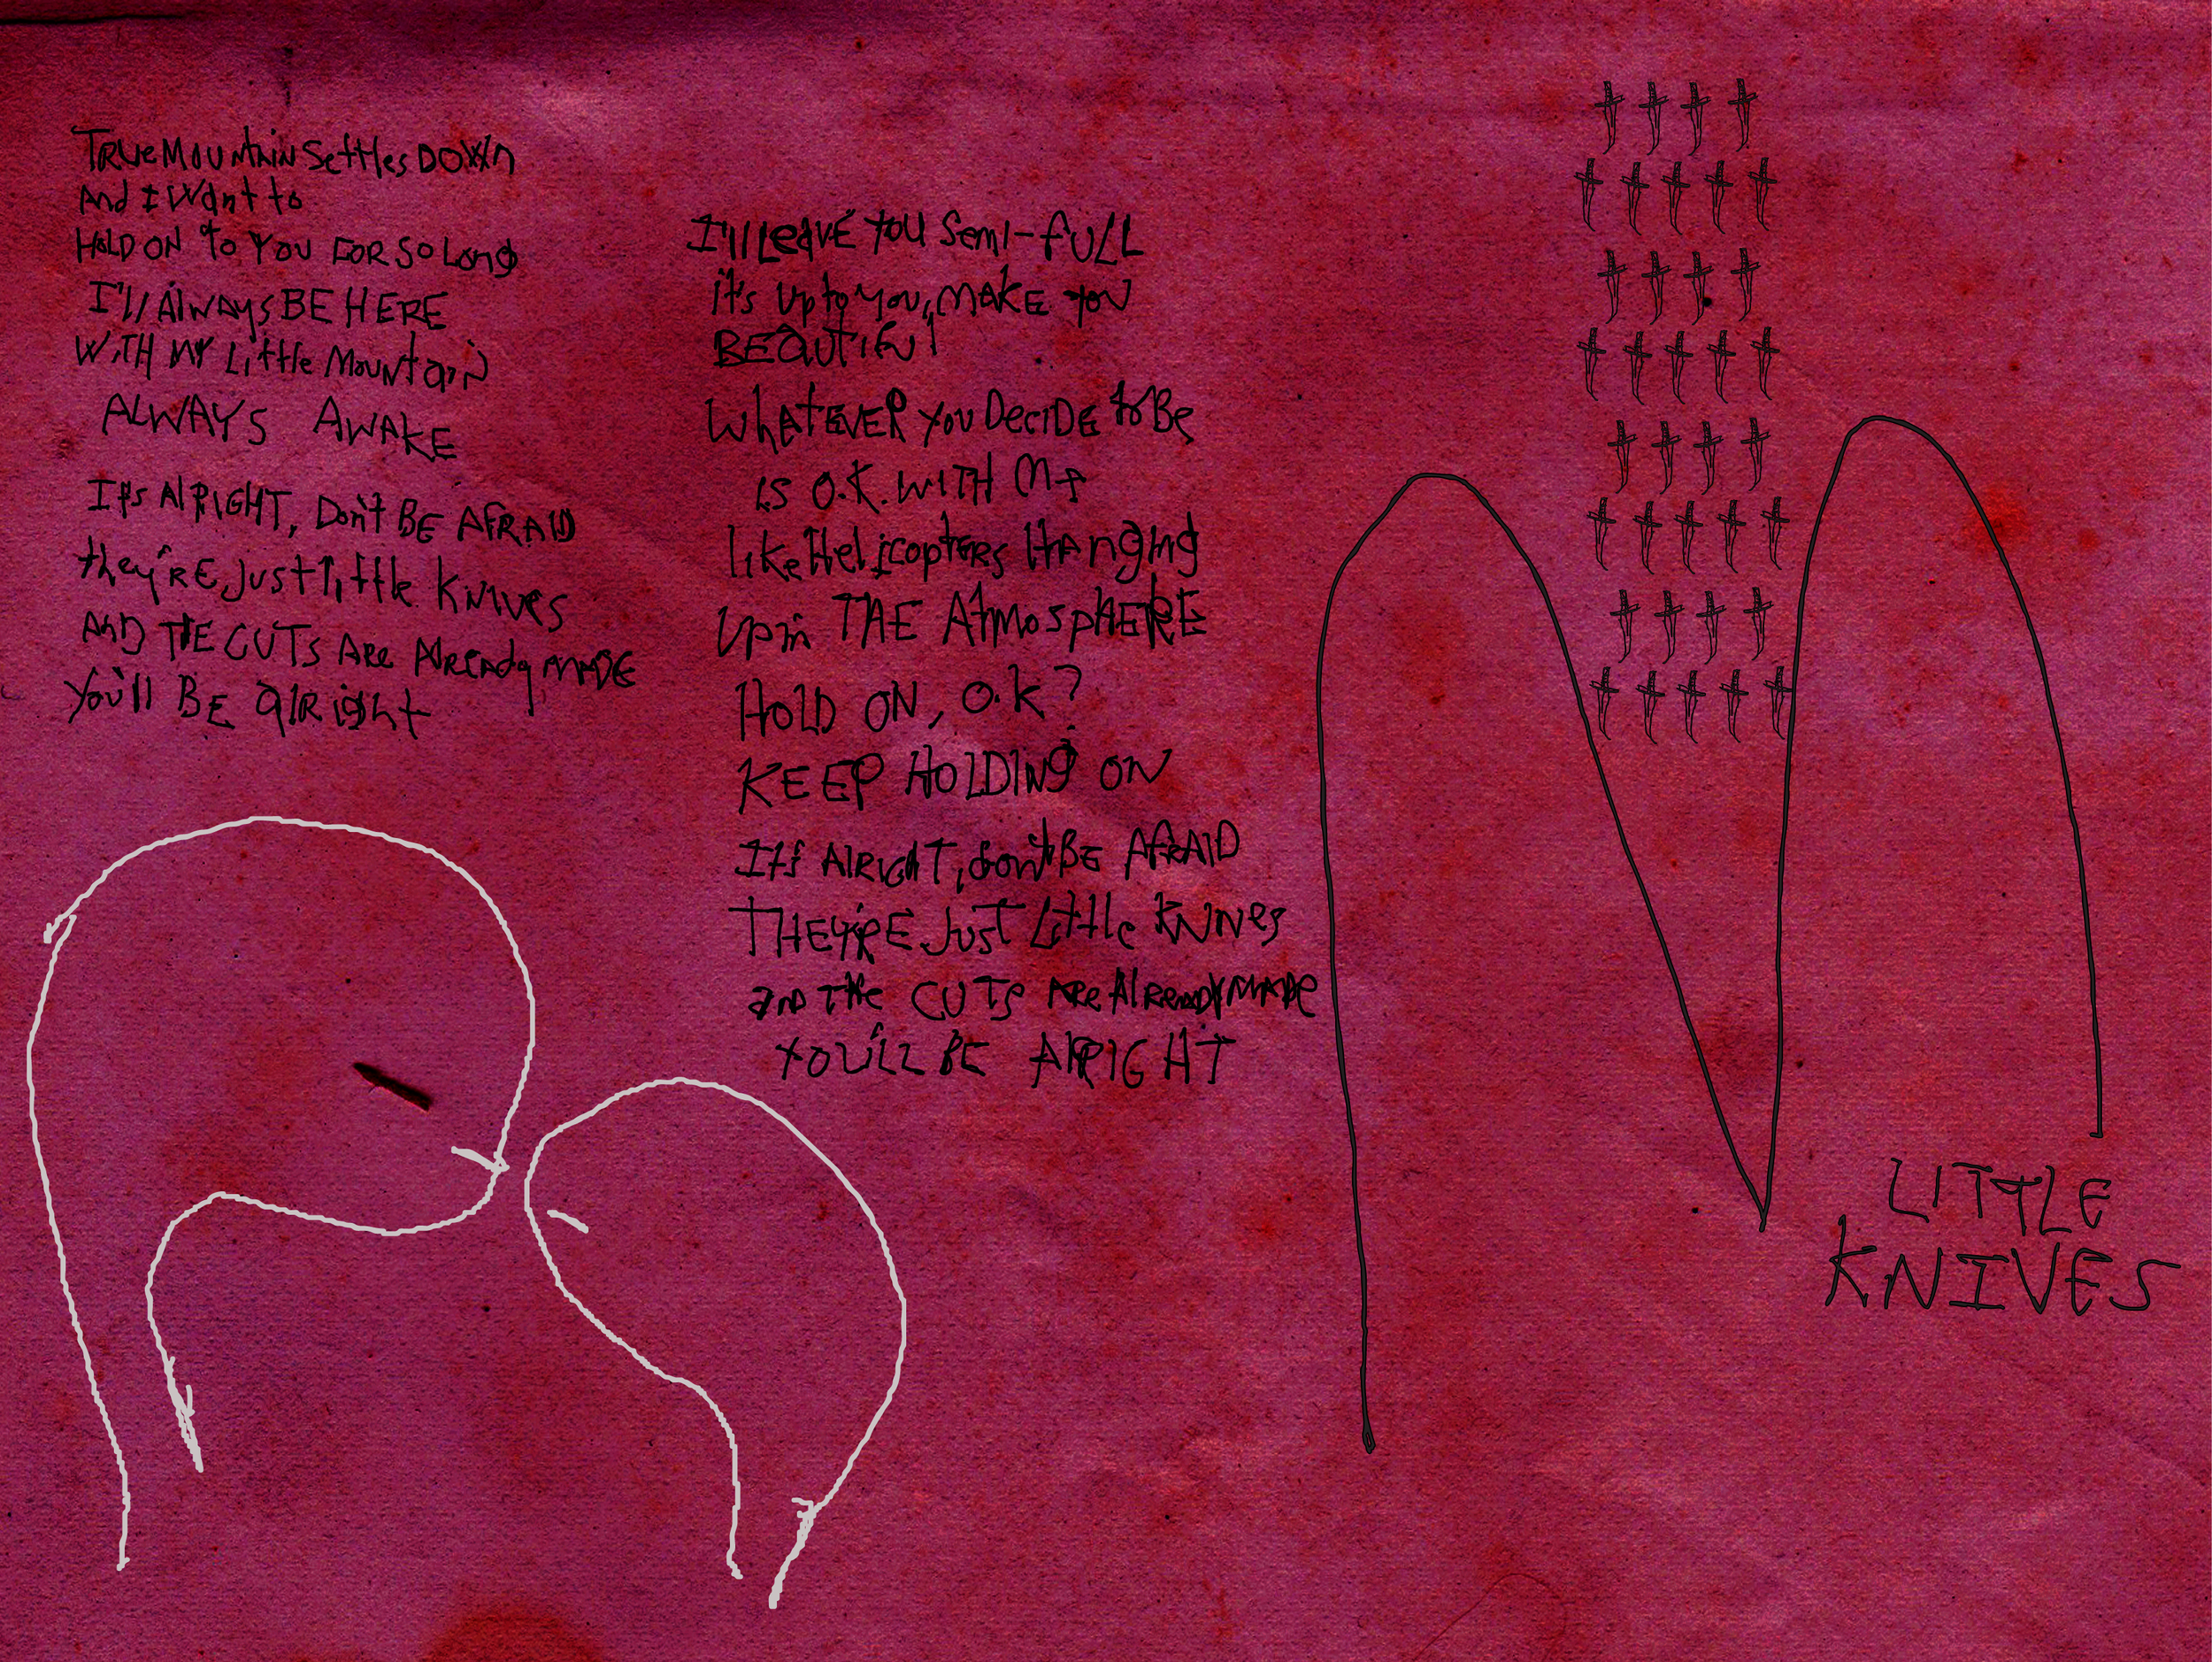 TRUE MOUNTAIN SettLes DOWN
And I Want to
HOLD ON to YOU FOR SO LONg
I'll AlWAYS BE HERE
WITH MY Little MOUNtaiN
ALWAYS AWAKE
It's AlRIGHT, Don't BE AFRAID
they'RE Just little KNIVES
AND THE CUTS ARe AlReady MADE
You'll BE alRight
I'll LeAVE YOU Semi-fULL
it's Up to you, MAKE YOU
BEAUTIFUl
WhATEVER you DeciDE to Be
is O.K. WITH Me
like Helicopters Hanging
Up in THE AtmospHERE
HOLD ON, O.K?
KEEP HOLDINg ON
It's AlRight, don't BE AfRAID
THEY'RE Just Little KNIVES
and The CUTS ARe AlReady MADE
YOU'LL BE AlRIGHT
LITTLE
KNIVES